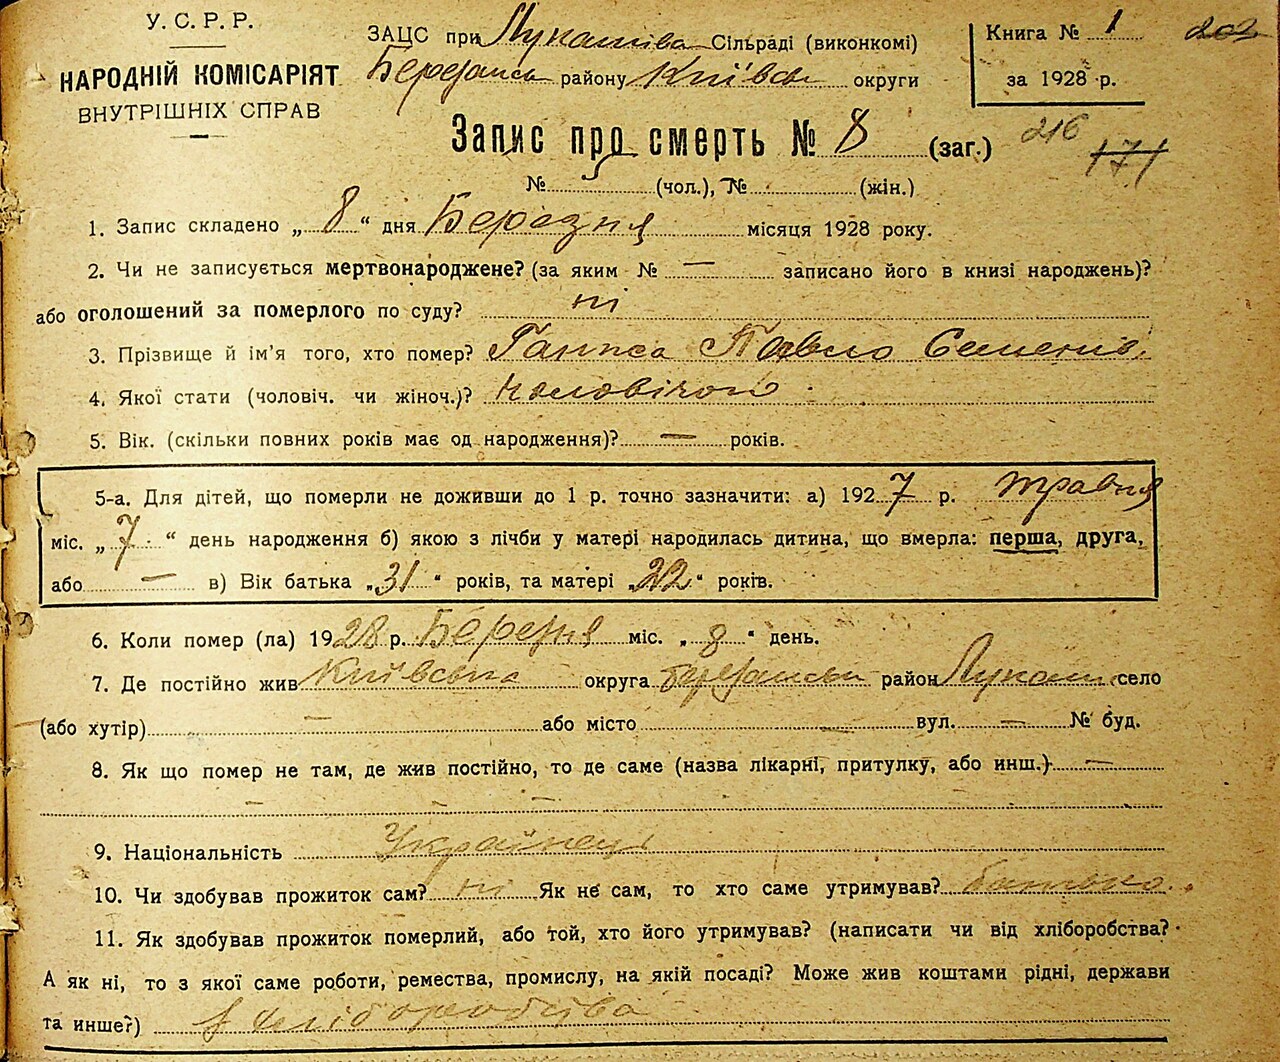 У. С. Р. Р.
НАРОДНІЙ КОМІСАРІЯТ
ВНУТРІШНІХ СПРАВ
ЗАЦС при Лукашівс Сільраді (виконкомі)
Березансь району Київськ округи
Книга № 1
за 1928 р.
202
Запис про смерть № 8 (заг.)
216
171
№ 5 (чол.), № (жін.)
1. Запис складено „ 8 “ дня Березня місяця 1928 року.
2. Чи не записується мертвонароджене? (за яким № — записано його в книзі народжень)?
або оголошений за померлого по суду? ні
3. Прізвище й ім'я того, хто помер? Павло Семенів.
4. Якої стати (чоловіч. чи жіноч.)? чоловічої
5. Вік. (скільки повних років має од народження)? — років.
5-а. Для дітей, що померли не доживши до 1 р. точно зазначити: а) 1927 р. травня
міс. „ 7 “ день народження б) якою з лічби у матері народилась дитина, що вмерла: перша, друга,
або — в) Вік батька „31“ років, та матері „22“ років.
6. Коли помер (ла) 1928 р. Березня міс. „ 8 “ день.
7. Де постійно жив Київська округа Березанськ район Лукаші село
(або хутір) — або місто вул. — № буд.
8. Як що помер не там, де жив постійно, то де саме (назва лікарні, притулку, або инш.) —
— — —
9. Національність Українець
10. Чи здобував прожиток сам? ні Як не сам, то хто саме утримував? батько.
11. Як здобував прожиток померлий, або той, хто його утримував? (написати чи від хліборобства?
А як ні, то з якої саме роботи, ремества, промислу, на якій посаді? Може жив коштами рідні, держави
та инше?) з хліборобства